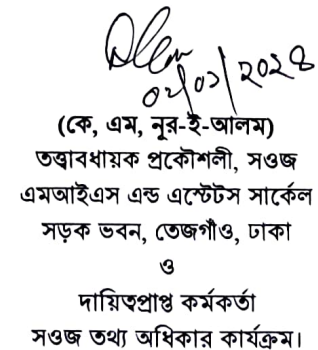 ০৫/০২/২০২৪
(কে, এম, নূর-ই-আলম)
তত্ত্বাবধায়ক প্রকৌশলী, সওজ
এমআইএস এন্ড এস্টেটস সার্কেল
সড়ক ভবন, তেজগাঁও, ঢাকা
ও
দায়িত্বপ্রাপ্ত কর্মকর্তা
সওজ তথ্য অধিকার কার্যক্রম।